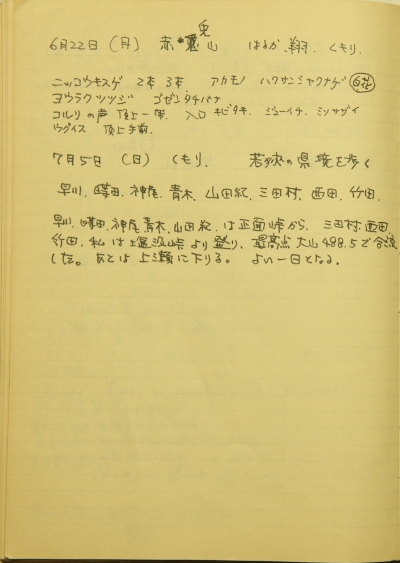 6月22日(月) 赤兎山 はるか、翔、くもり、
ニッコウキスゲ 2本 3本 アカモノ ハクサンシャクナゲ 白花
ヨウラクツツジ ゴゼンタチバナ
コルリの声 頂上一帯、入口 キビタキ、ジューイチ、ミソサザイ
ウグイス 頂上手前、
7月5日(日) くもり、 若狭の県境を歩く
早川、曄田、神尾、青木、山田紀、三田村、西田、竹田、
早川、曄田、神尾、青木、山田紀、は正面峠から、三田村、西田、
竹田、私は塩汲峠より登り、最高点大山488.5で合流
した。あとは上瀬に下りる。 よい一日となる。